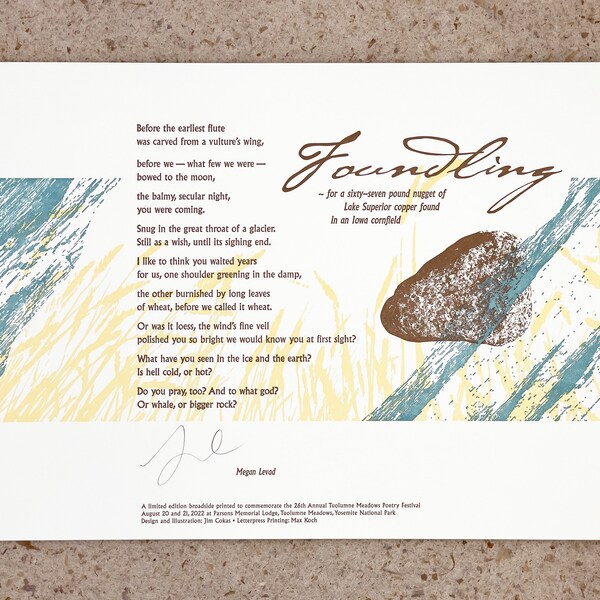 Foundling
~ for a sixty–seven pound nugget of
Lake Superior copper found
in an Iowa cornfield
Before the earliest flute
was carved from a vulture's wing,
before we — what few we were —
bowed to the moon,
the balmy, secular night,
you were coming.
Snug in the great throat of a glacier.
Still as a wish, until its sighing end.
I like to think you waited years
for us, one shoulder greening in the damp,
the other burnished by long leaves
of wheat, before we called it wheat.
Or was it loess, the wind's fine veil
polished you so bright we would know you at first sight?
What have you seen in the ice and the earth?
Is hell cold, or hot?
Do you pray, too? And to what god?
Or whale, or bigger rock?
Megan Levad
A limited edition broadside printed to commemorate the 26th Annual Tuolumne Meadows Poetry Festival
August 20 and 21, 2022 at Parsons Memorial Lodge, Tuolumne Meadows, Yosemite National Park
Design and Illustration: Jim Cokas • Letterpress Printing: Max Koch